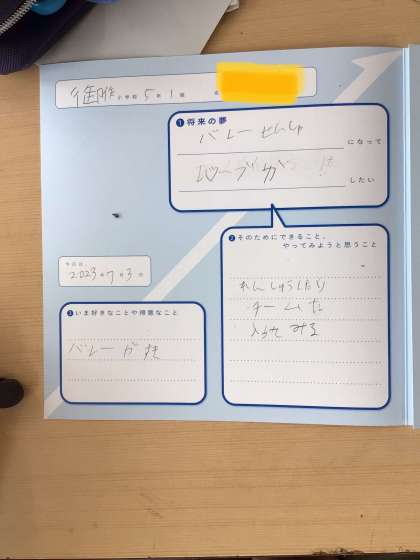 小学校 5年 1組 名
❶将来の夢
バレーせんしゅ
になって
がしたい
❷そのためにできること、
やってみようと思うこと
れんしゅうしたり
チームに
入ってみる
今日は、
2023年7月3日
❸いま好きなことや得意なこと
バレーがすき